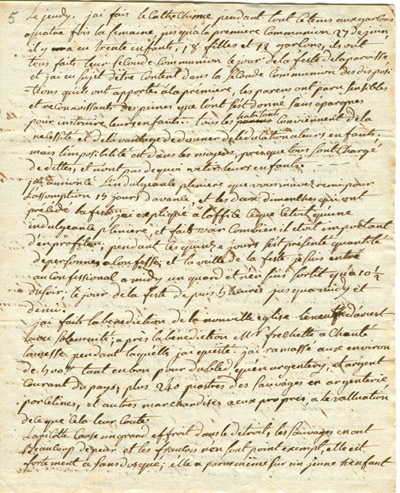 5 Le jeudy. j'ai fait le Cathechisme pendant tout le tems aux garçons
quatre fois la semaine, jusqu'a la premiere Communion 27 de juin
il y en a eu trente enfants, 18 filles et 12 garçons, ils ont
tous faits leur seconde Communion le jour de la feste de la paroisse,
et j'ai eu sujet d'être content dans la seconde Communion des disposi-
tions qu'ils ont apportés a la premiere, les parens ont paru sensibles
et reconnoissants des peines que l'on s'est donné sans epargnes
pour instruire leurs enfants. tous les habitants Conviennent de la
necessité et de l'avantage de donner de l'éducation a leurs enfants.
mais l'impossibilité est dans les moyens, presque tous sont Chargé
de dettes, et n'ont pas de quoi vetir leurs enfants.
j'ai annoncé L'indulgence pleniere que vous m'avez remis pour
L'assomption 15 jours d'avance, et les deux dimanches qui ont
précédé la feste j'ai expliqué a l'office ce que c'etoit qu'une
indulgence pleniere, et fait voir Combien il étoit important
d'en profiter, pendant les quinze jours s'est présenté quantité
de personnes a Confesse, et la veille de la feste je suis entré
au confessional a midy un quart et n'en suis sortit qu'a 10½
du soir. le jour de la feste depuis 5 heures jusqu'a midy et
demi.
j'ai faits la benediction de la nouvelle eglise le
avec solemnité, après la bénédiction Mr frechette a Chanté
la messe pendant laquelle j'ai questé. j'ai ramassé aux environ
de 1500 tant en bon pour du bled qu'en argenterie, et argent
Courant du pays, plus 240 piastres des sauvages en argenterie
porcelines, et autres marchandises a eux propres, a l'evaluation
de ce que Cela leur Coute.
la picotte Cause un grand effroit dans le detroit, les sauvages en ont
beaucoup de peur et les françois n'en sont point exempt, elle est
fortement a Sandosque; elle a paru même sur un jeune enfant